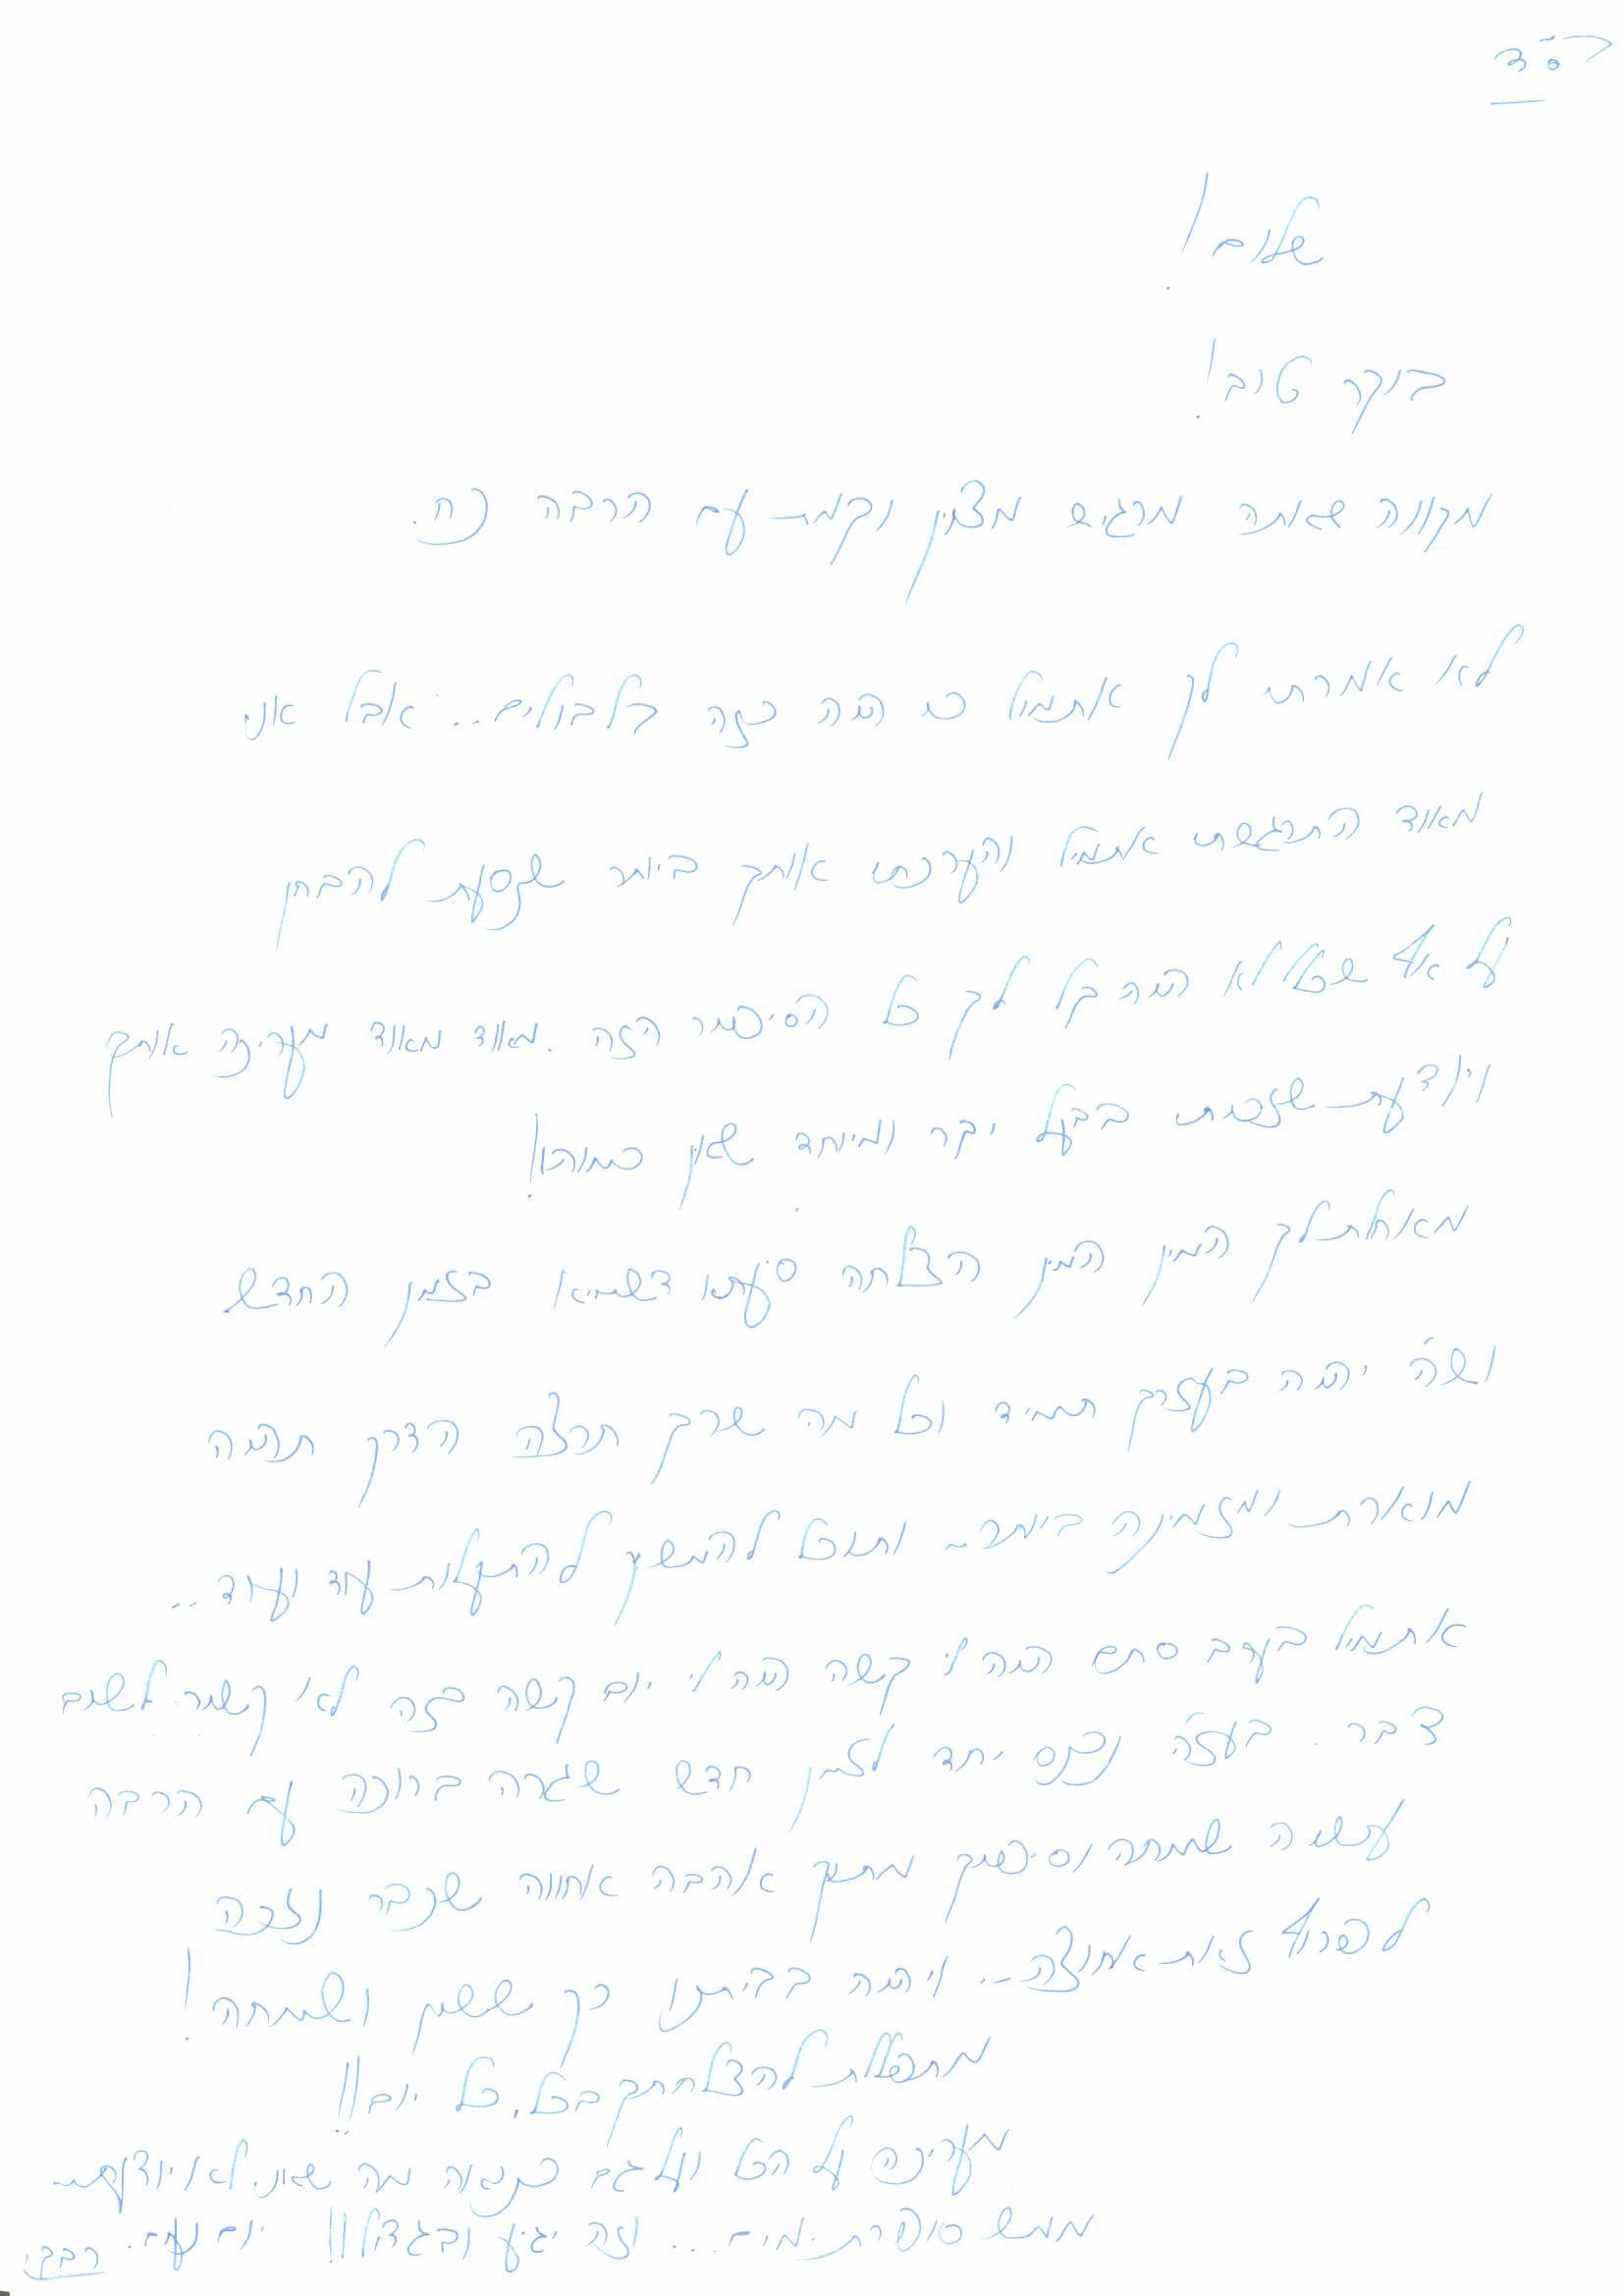 בס"ד
שלום!
בוקר טוב!
מקווה שאתה מרגיש מצוין וקמת עם הרבה כח.
לא אמרתי לך אתמול כי היה כזה בלבולים... אבל אני
מאוד התרגשתי אתמול והערכתי אותך ביותר שנסעת להבחן
על אף שכלל לא היה קל לך כל הסיפור הזה. מאוד מאוד מעריכה אותך
ויודעת שזכיתי בבעל יקר ומיוחד שאין כמוהו!
מאחלת לך המון המון הצלחה סיעתא דשמיא בזמן החדש
ושה' יהיה בעזרך תמיד וכל מה שרק תרצה הדרך תהיה
מוארת ומזמינה ביותר.. ותוכל להמשיך להתעלות עוד ועוד...
אתמול בערב סתם היה לי קשה היה לי יום קשה כזה לא קשור לשום
דבר. בעז"ה נכנס יחד לזמן חדש שגרה ברוכה עם הרבה
עשיה שמחה וסיפוק מתוק אהבה אחווה שכבר נזכה
לפרוף זאת אחוצה... ויהיה בביתנו רק ששון ושמחה!
מתפללת להצלחתך בכל, כל יום!!
מעריכה על הכל ועל גם כנראה מה שאני לא יודעת
ממש סופרת ימים... וזה יגיע ובגדול!!! יום נעים.